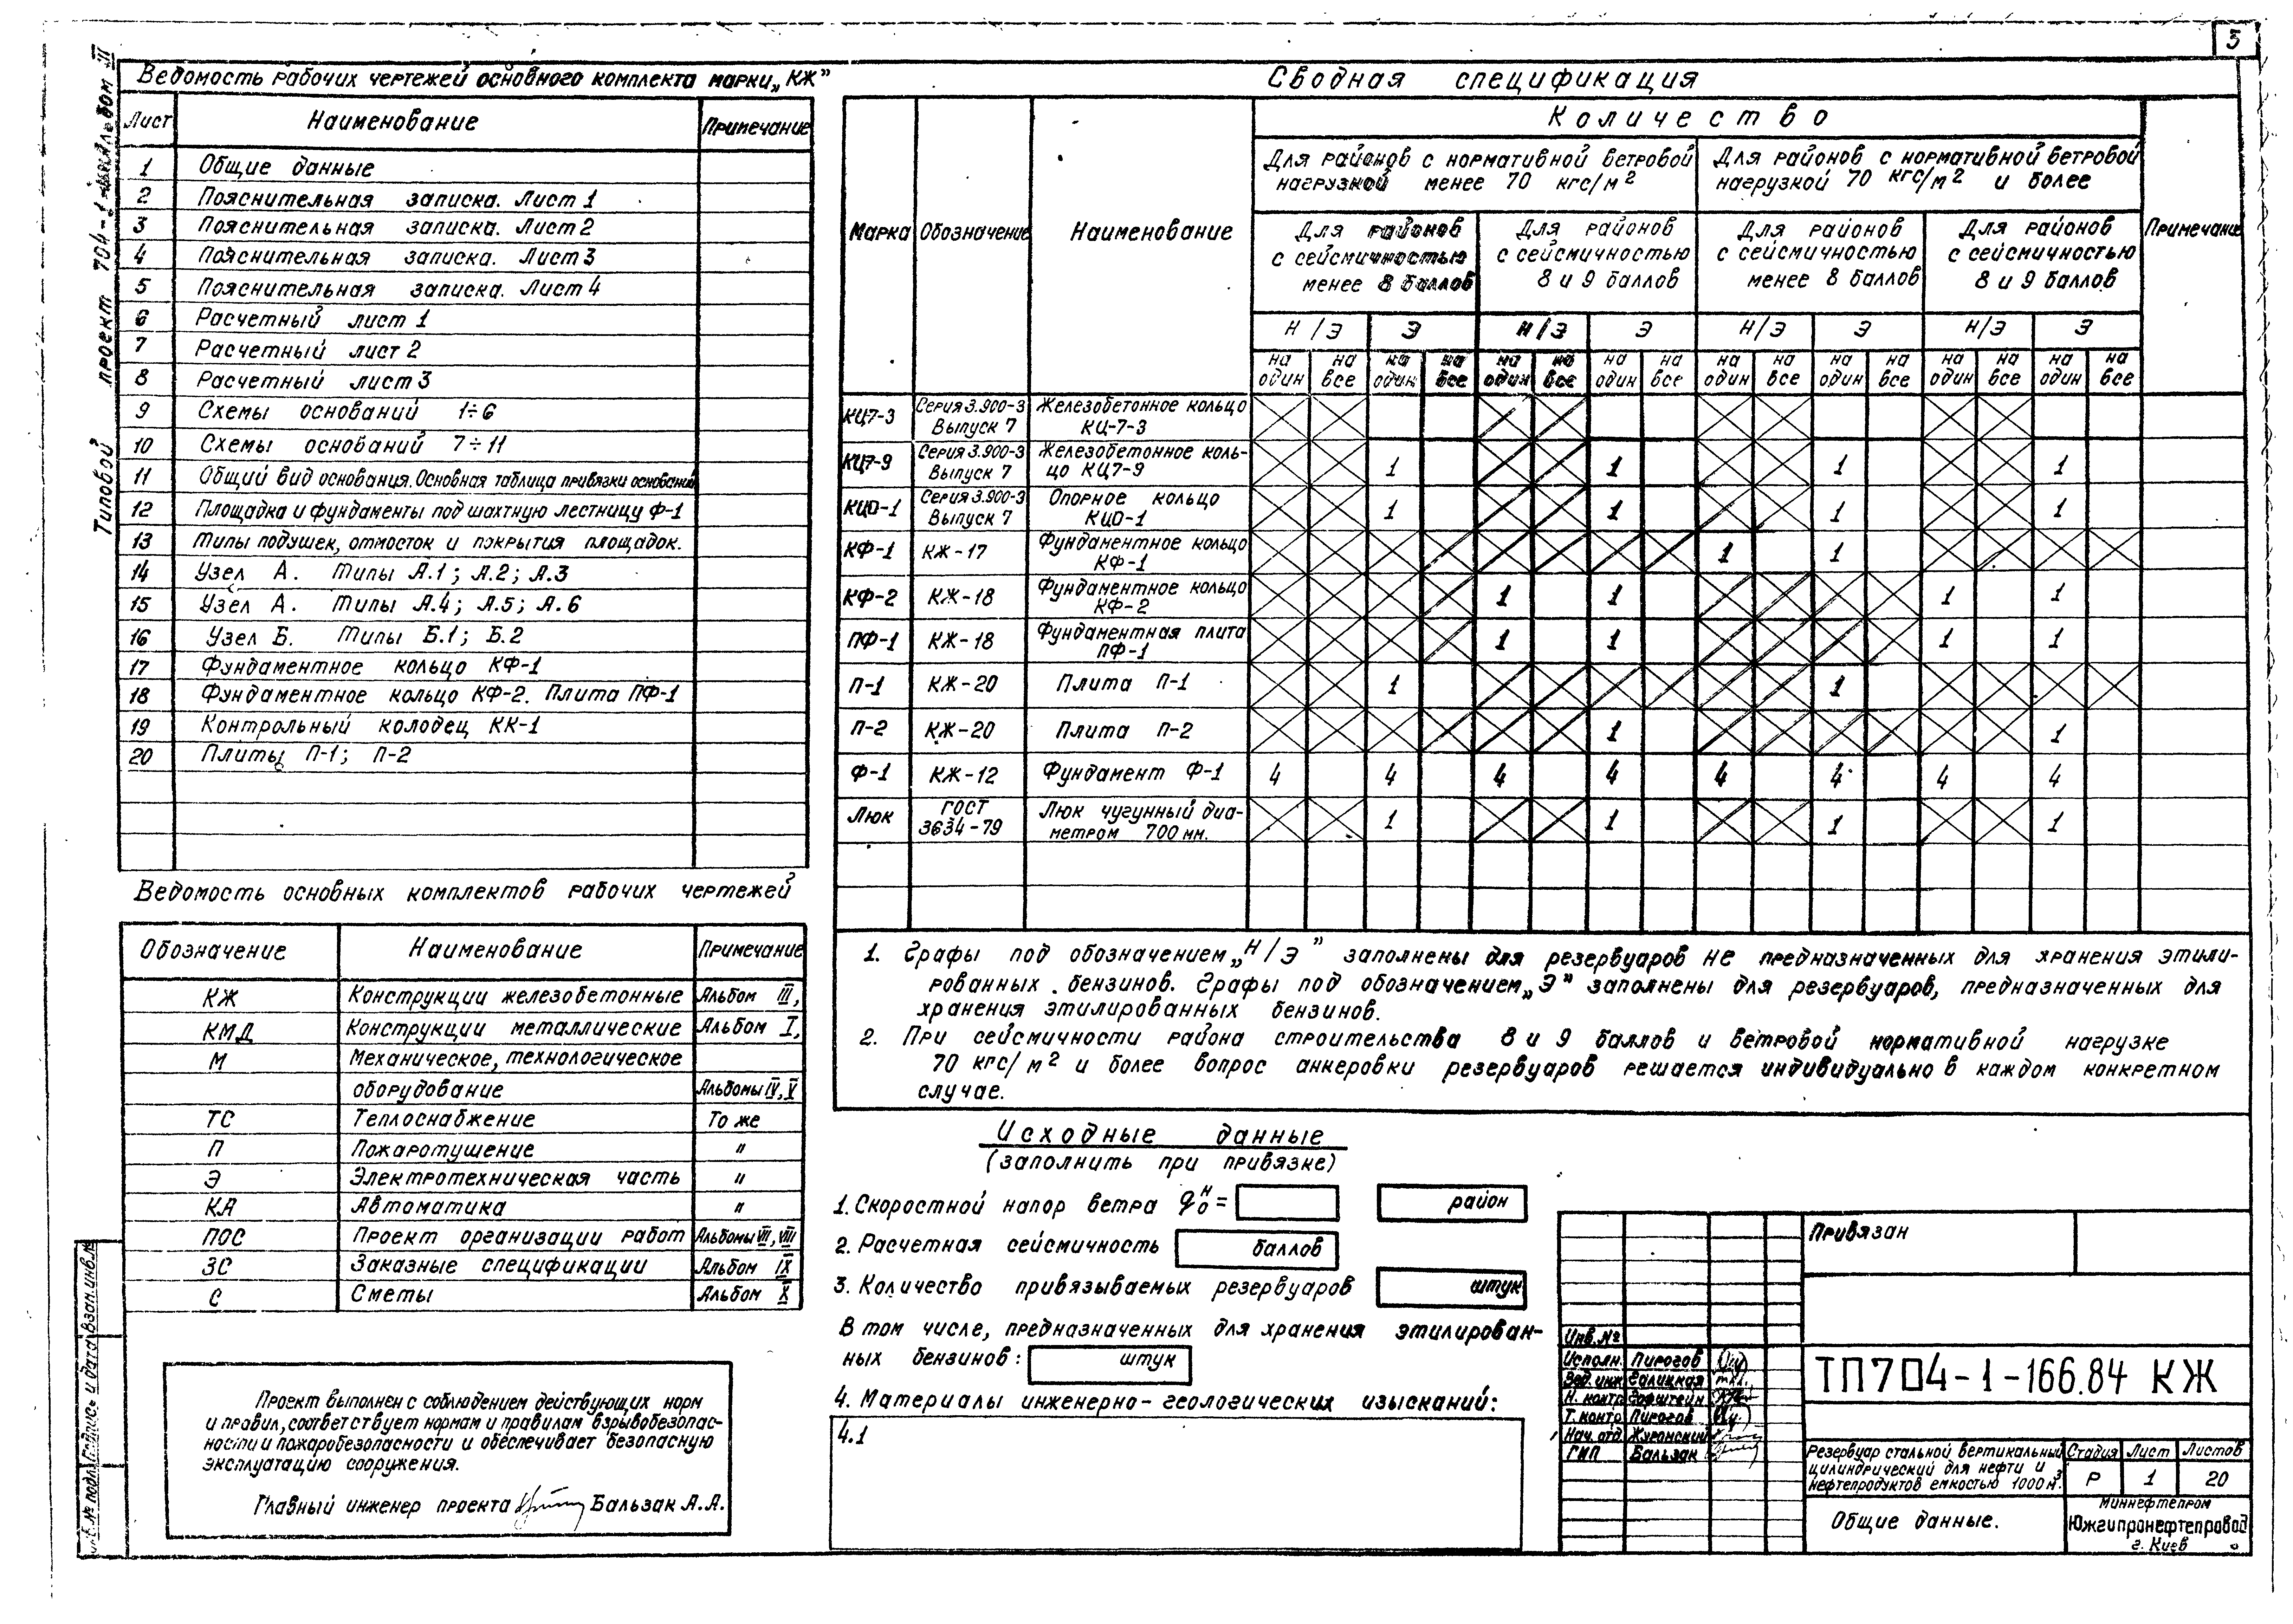 3
Типовой проект 704-1- Альбом III
Ведомость рабочих чертежей основного комплекта марки „КЖ”
Лист Наименование Примечание
1 Общие данные
2 Пояснительная записка. Лист 1
3 Пояснительная записка. Лист 2
4 Пояснительная записка. Лист 3
5 Пояснительная записка. Лист 4
6 Расчетный лист 1
7 Расчетный лист 2
8 Расчетный лист 3
9 Схемы оснований 1÷6
10 Схемы оснований 7÷11
11 Общий вид основания. Основная таблица привязки оснований
12 Площадка и фундаменты под шахтную лестницу Ф-1
13 Типы подушек, отмосток и покрытия площадок.
14 Узел А. Типы А.1; А.2; А.3
15 Узел А. Типы А.4; А.5; А.6
16 Узел Б. Типы Б.1; Б.2
17 Фундаментное кольцо КФ-1
18 Фундаментное кольцо КФ-2. Плита ПФ-1
19 Контрольный колодец КК-1
20 Плиты П-1; П-2
Ведомость основных комплектов рабочих чертежей
Обозначение Наименование Примечание
КЖ Конструкции железобетонные Альбом III,
КМД Конструкции металлические Альбом I,
М Механическое, технологическое
оборудование Альбомы IV, V
ТС Теплоснабжение То же
П Пожаротушение "
Э Электротехническая часть "
КА Автоматика "
ПОС Проект организации работ Альбомы VII, VIII
ЗС Заказные спецификации Альбом IX
С Сметы Альбом X
Проект выполнен с соблюдением действующих норм
и правил, соответствует нормам и правилам взрывобезопас-
ности и пожаробезопасности и обеспечивает безопасную
эксплуатацию сооружения.
Главный инженер проекта Бальзак А.А.
Инв.№ подл. Подпись и дата Взам.инв.№
Сводная спецификация
Марка Обозначение Наименование Количество Примечание
Для районов с нормативной ветровой Для районов с нормативной ветровой
нагрузкой менее 70 кгс/м2 нагрузкой 70 кгс/м2 и более
Для районов Для районов Для районов Для районов
с сейсмичностью с сейсмичностью с сейсмичностью с сейсмичностью
менее 8 баллов 8 и 9 баллов менее 8 баллов 8 и 9 баллов
Н/Э Э Н/Э Э Н/Э Э Н/Э Э
на на на на на на на на на на на на на на на на
один все один все один все один все один все один все один все один все
КЦ7-3 Серия 3.900-3 Железобетонное кольцо
Выпуск 7 КЦ-7-3
КЦ7-9 Серия 3.900-3 Железобетонное коль- 1 1 1 1
Выпуск 7 цо КЦ7-9
КЦО-1 Серия 3.900-3 Опорное кольцо 1 1 1 1
Выпуск 7 КЦО-1
КФ-1 КЖ-17 Фундаментное кольцо 1 1
КФ-1
КФ-2 КЖ-18 Фундаментное кольцо 1 1 1 1
КФ-2
ПФ-1 КЖ-18 Фундаментная плита 1 1 1 1
ПФ-1
П-1 КЖ-20 Плита П-1 1 1
П-2 КЖ-20 Плита П-2 1 1
Ф-1 КЖ-12 Фундамент Ф-1 4 4 4 4 4 4 4 4
Люк ГОСТ Люк чугунный диа- 1 1 1 1
3634-79 метром 700 мм.
1. Графы под обозначением „Н/Э” заполнены для резервуаров не предназначенных для хранения этили-
рованных бензинов. Графы под обозначением „Э” заполнены для резервуаров, предназначенных для
хранения этилированных бензинов.
2. При сейсмичности района строительства 8 и 9 баллов и ветровой нормативной нагрузке
70 кгс/м2 и более вопрос анкеровки резервуаров решается индивидуально в каждом конкретном
случае.
Исходные данные
(заполнить при привязке)
1. Скоростной напор ветра qоН= район
2. Расчетная сейсмичность баллов
3. Количество привязываемых резервуаров штук
В том числе, предназначенных для хранения этилирован-
ных бензинов: штук
4. Материалы инженерно-геологических изысканий:
4.1
Привязан
Инв.№
Исполн. Пирогов
Вед. инж Галицкая
Н. контр
Т. контр Пирогов
Нач. отд. Журанский
ГИП Бальзак
ТП704-1-166.84 КЖ
Резервуар стальной вертикальный Стадия Лист Листов
цилиндрический для нефти и
нефтепродуктов емкостью 1000м3. Р 1 20
Общие данные.
Миннефтепром
Южгипронефтепровод
г. Киев